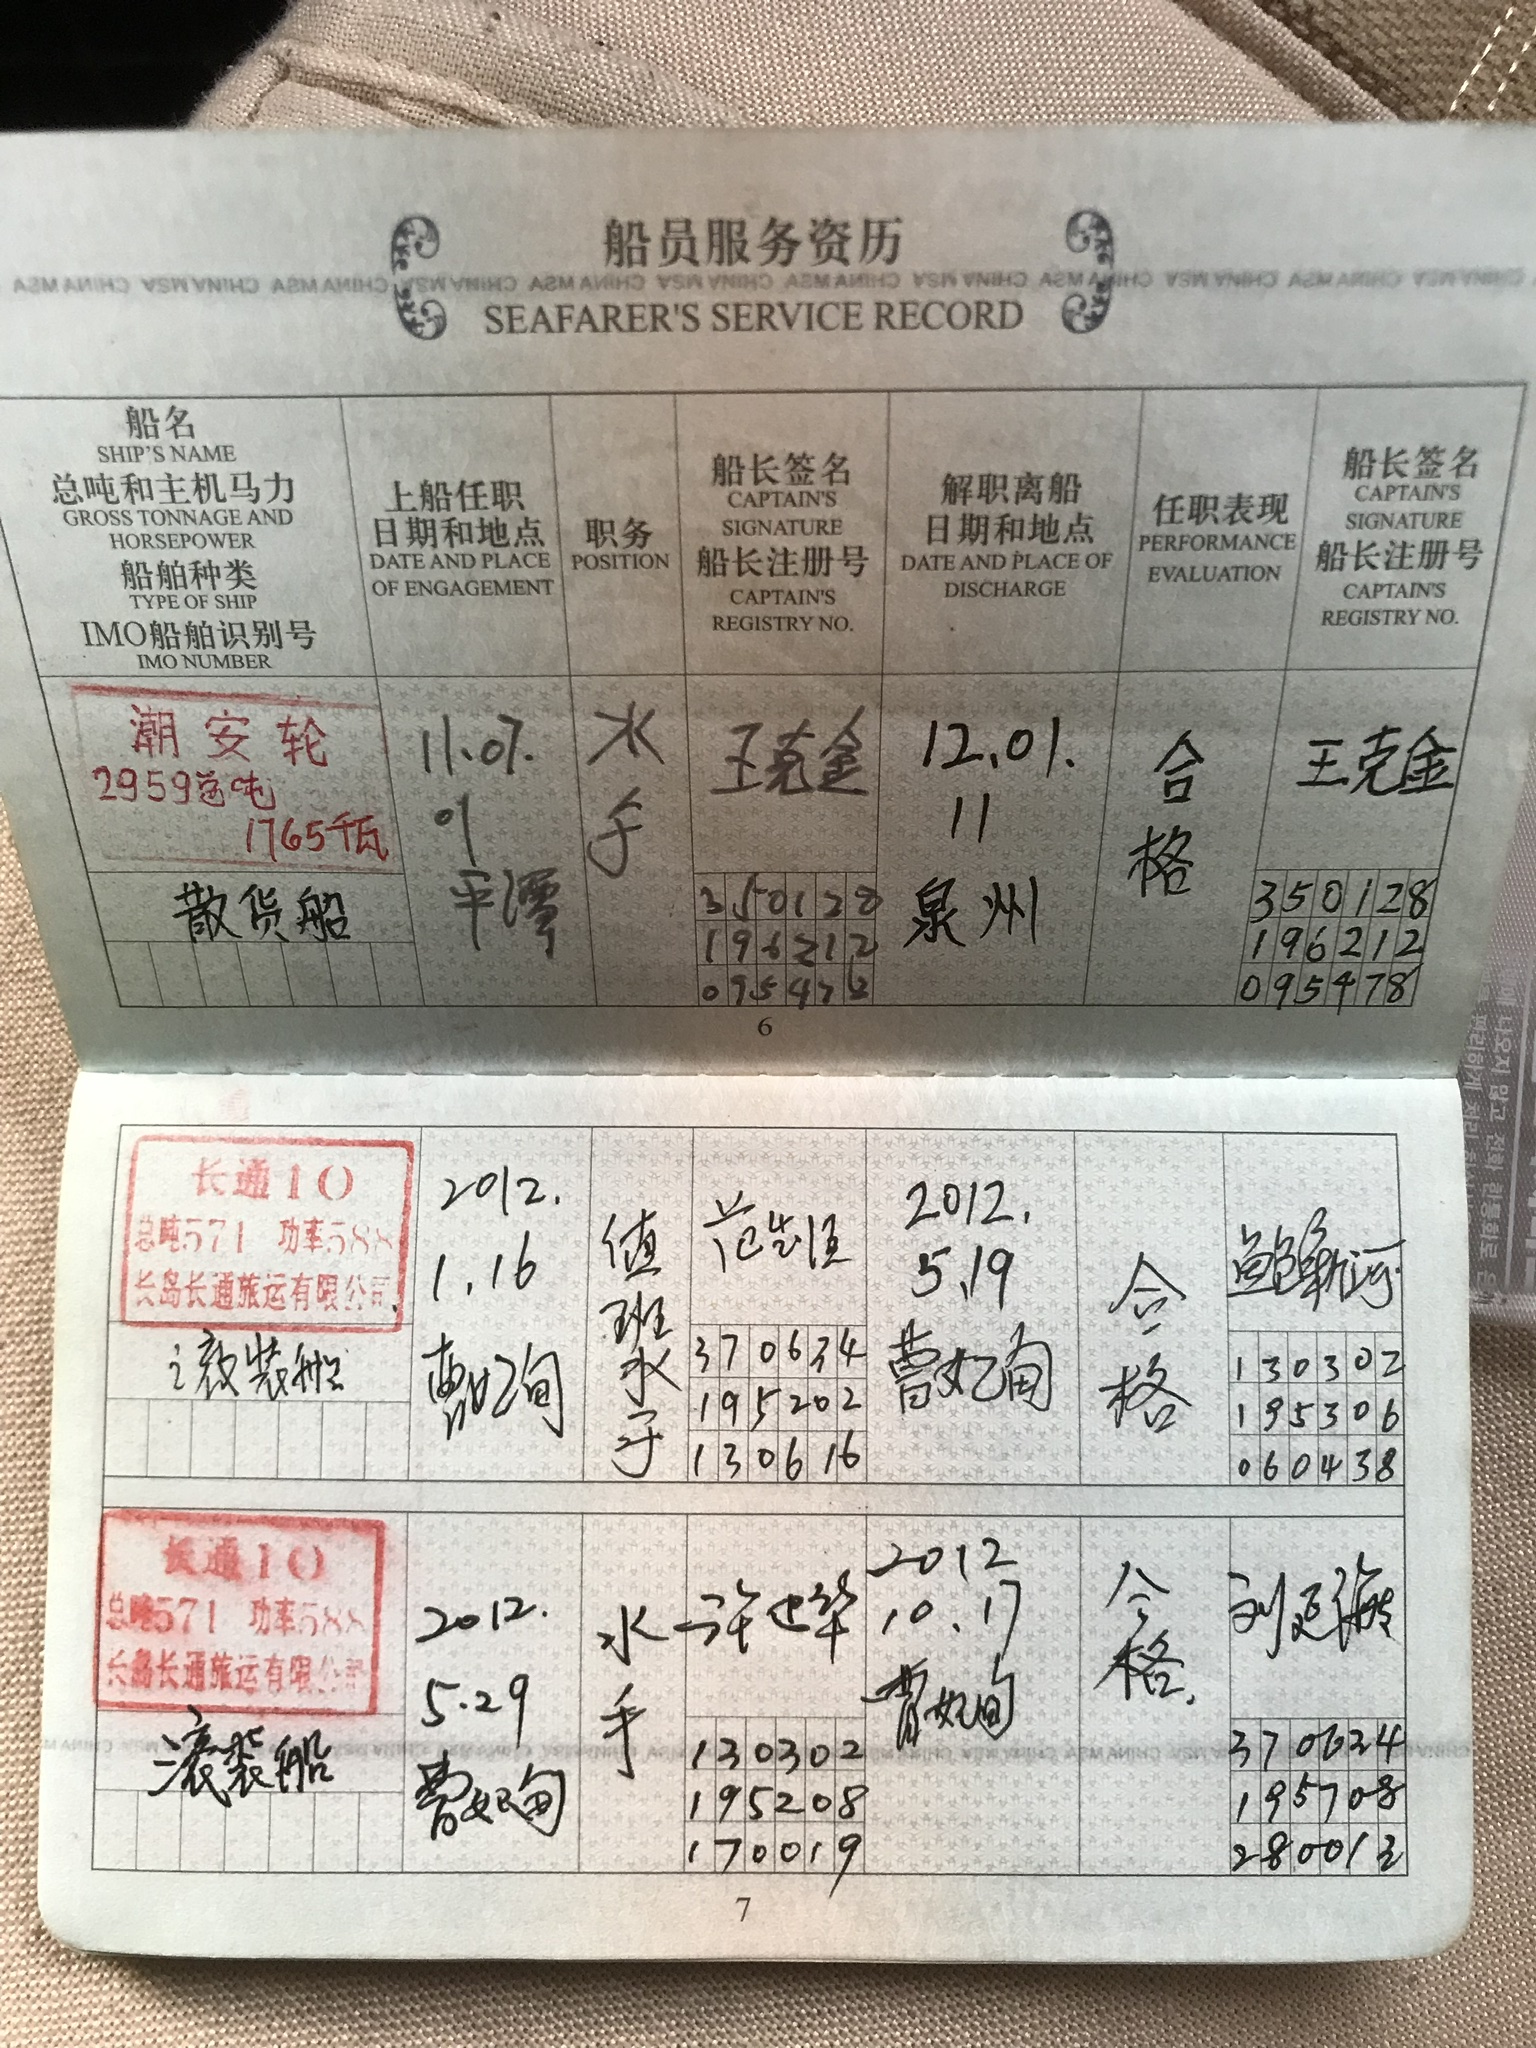 船员服务资历
CHINA MSA CHINA MSA CHINA MSA CHINA MSA CHINA MSA CHINA MSA CHINA MSA CHINA MSA CHINA MSA CHINA MSA CHINA MSA
SEAFARER'S SERVICE RECORD
船名
SHIP'S NAME
总吨和主机马力
GROSS TONNAGE AND
HORSEPOWER
船舶种类
TYPE OF SHIP
IMO船舶识别号
IMO NUMBER
上船任职
日期和地点
DATE AND PLACE
OF ENGAGEMENT
职务
POSITION
船长签名
CAPTAIN'S
SIGNATURE
船长注册号
CAPTAIN'S
REGISTRY NO.
解职离船
日期和地点
DATE AND PLACE OF
DISCHARGE
任职表现
PERFORMANCE
EVALUATION
船长签名
CAPTAIN'S
SIGNATURE
船长注册号
CAPTAIN'S
REGISTRY NO.
潮安轮
2959总吨
1765千瓦
散货船
11.07.
01
平潭
水
手
王克金
350128
196212
095478
12.01.
11
泉州
合
格
王克金
350128
196212
095478
6
长通10
总吨571 功率588
长岛长通旅运有限公司
滚装船
2012.
1.16
曹妃甸
值
班
水
手
370634
195202
130616
2012.
5.19
曹妃甸
合
格
130302
195306
060438
长通10
总吨571 功率588
长岛长通旅运有限公司
滚装船
2012.
5.29
曹妃甸
水
手
130302
195208
170019
2012
10.17
曹妃甸
合
格.
370634
195708
280013
7